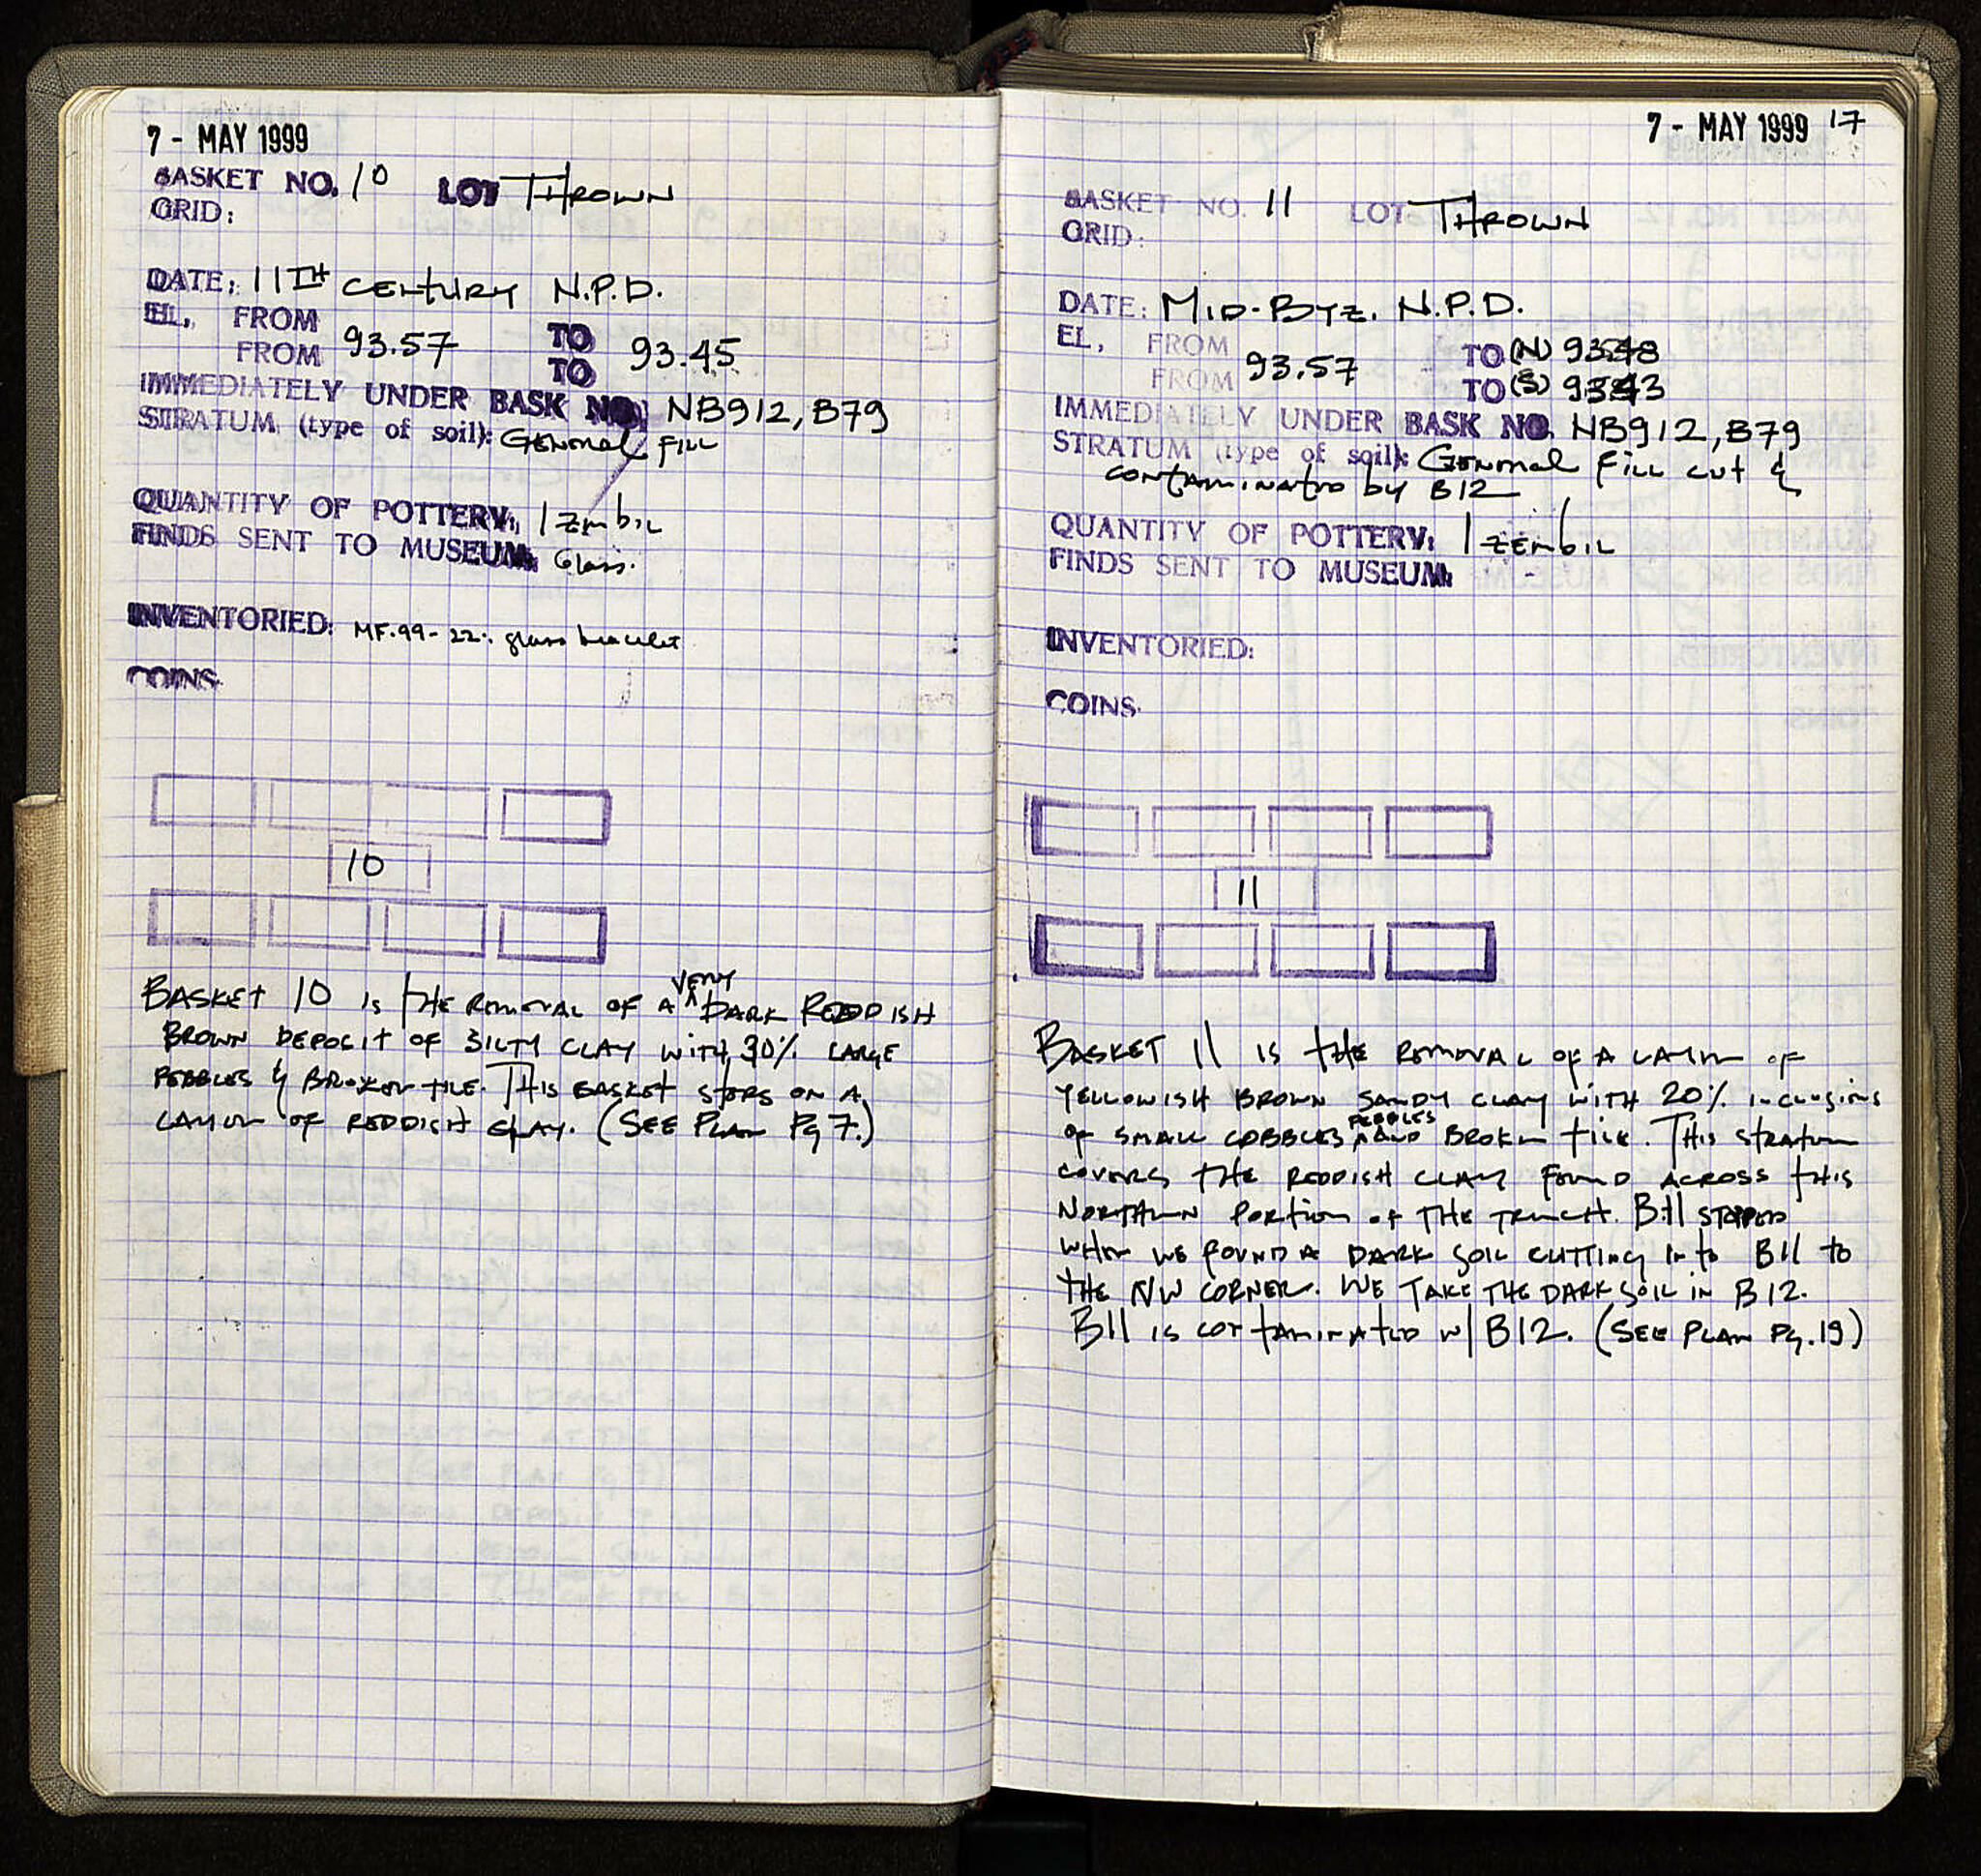 7 - MAY 1999
BASKET NO. 10 LOT THROWN
GRID:
DATE: 11TH CENTURY N.P.D.
EL. FROM
FROM 93.57 TO
TO 93.45
IMMEDIATELY UNDER BASK NO. NB912, B79
STRATUM (type of soil): GENERAL FILL
QUANTITY OF POTTERY: 1 ZEMBIL
FINDS SENT TO MUSEUM: Glass.
INVENTORIED: MF-99-22: glass bracelet
COINS
10
BASKET 10 IS THE REMOVAL OF A VERY DARK REDDISH
BROWN DEPOSIT OF SILTY CLAY WITH 30% LARGE
PEBBLES & BROKEN TILE. THIS BASKET STOPS ON A
LAYER OF REDDISH CLAY. (SEE PLAN PG 7.)
7 - MAY 1999 17
BASKET NO. 11 LOT THROWN
GRID:
DATE: MID-BYZ. N.P.D.
EL. FROM TO (N) 93.48
FROM 93.57 TO (S) 93.43
IMMEDIATELY UNDER BASK NO. NB912, B79
STRATUM (type of soil): GENERAL FILL CUT &
CONTAMINATED BY B12
QUANTITY OF POTTERY: 1 ZEMBIL
FINDS SENT TO MUSEUM:
INVENTORIED:
COINS
11
BASKET 11 IS THE REMOVAL OF A LAYER OF
YELLOWISH BROWN SANDY CLAY WITH 20% INCLUSIONS
OF SMALL COBBLES PEBBLES AND BROKEN TILE. THIS STRATUM
COVERS THE REDDISH CLAY FOUND ACROSS THIS
NORTHERN PORTION OF THE TRENCH. B11 STOPPED
WHEN WE FOUND A DARK SOIL CUTTING INTO B11 TO
THE NW CORNER. WE TAKE THE DARK SOIL IN B12.
B11 IS CONTAMINATED W/ B12. (SEE PLAN PG. 19)